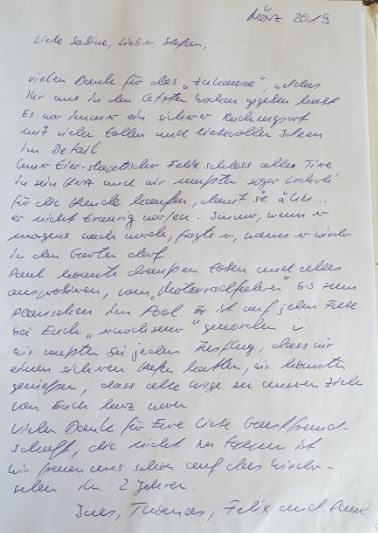 März 2019
Liebe Sabine, Lieber Stefan,
vielen Dank für das „Zuhause“, welches
Ihr uns in den letzten Wochen gegeben habt.
Es war immer ein sicherer Rückzugsort
mit vielen tollen und liebevollen Ideen
im Detail.
Unser Tier-skeptischer Felix schloss alle Tiere
in sein Herz und wir mussten sogar
für die Hunde kaufen, damit sie
er nicht traurig werden. Immer, wenn er
morgens wach wurde, fragte er, wann er wieder
in den Garten darf.
Paul konnte draußen toben und alles
ausprobieren, vom „Motorradfahren“ bis zum
planschen im Pool. Er ist auf jeden Fall
bei Euch „erwachsener“ geworden ü
Wir wussten bei jedem Ausflug, dass wir
einen sicheren Hafen hatten, wir konnten
genießen, dass alle Wege zu unseren Zielen
von Euch kurz waren.
Vielen Dank für Eure liebe Gastfreund-
schaft, die nicht zu toppen ist
Wir freuen uns schon auf das Wieder-
sehen in 2 Jahren.
Ines, Thomas, Felix und Paul